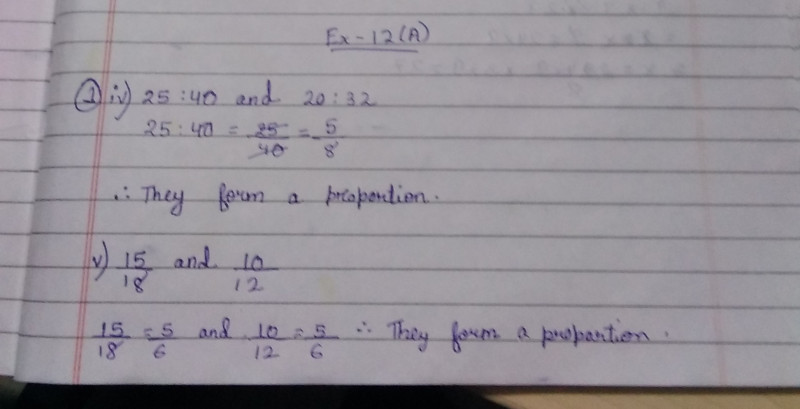 Ex-12(A)
① iv) 25:40 and 20:32
25:40 = 25/40 = 5/8
∴ They form a proportion.
v) 15/18 and 10/12
15/18 = 5/6 and 10/12 = 5/6 ∴ They form a propartion.